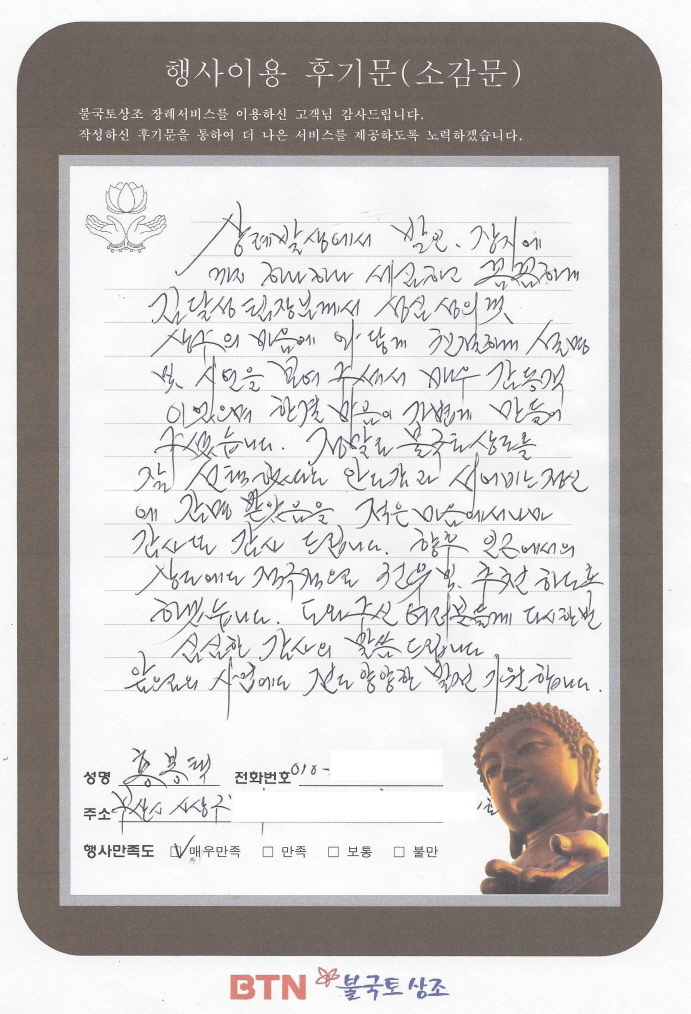 행사이용 후기문(소감문)
불국토상조 장례서비스를 이용하신 고객님 감사드립니다.
작성하신 후기문을 통하여 더 나은 서비스를 제공하도록 노력하겠습니다.
상례발생에서 발인、장지에
까지 하나하나 세심하고 꼼꼼하게
김달성 팀장분께서 성실 성의껏
상주의 마음에 와 닿게 친절하게 설명
및 시연을 보여 주셔서 매우 감동적
이었으며 한결 마음이 가볍게 만들어
주셨습니다. 정말로 불국토상조를
잘 선택했다는 안도감과 서어비스 정신
에 감명 받았음을 적은 마음에서나마
감사 또 감사 드립니다. 향후 인근에서의
상조에도 적극적으로 권유 및 추천 하도록
하겠습니다. 도와주신 여러분들께 다시한번
심심한 감사의 말씀 드립니다
앞으로의 사업에도 전도양양한 발전 기원합니다.
성명 홍봉택 전화번호 010-
주소 부산시 사상구 호
행사만족도 ☑ 매우만족 □ 만족 □ 보통 □ 불만
BTN 불국토상조